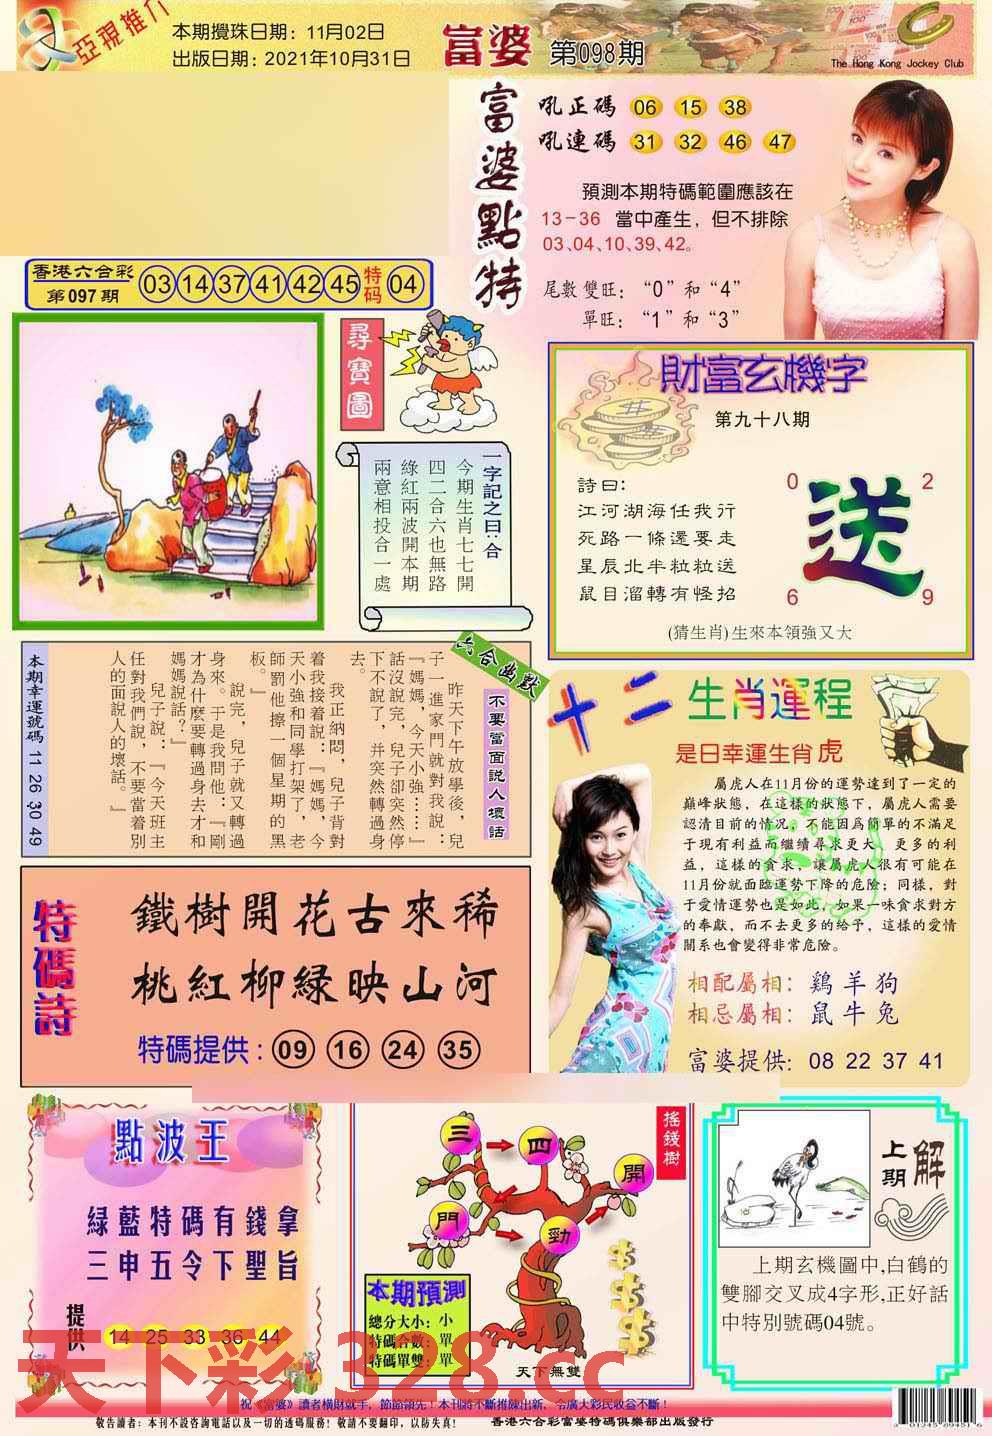 亞視推介
本期攪珠日期：11月02日
出版日期：2021年10月31日
富婆 第098期
The Hong Kong Jockey Club
富婆點特
吼正碼 06 15 38
吼連碼 31 32 46 47
預測本期特碼範圍應該在
13-36 當中產生，但不排除
03、04、10、39、42。
尾數雙旺：“0”和“4”
單旺：“1”和“3”
香港六合彩
第097期
03 14 37 41 42 45 特码 04
尋寶圖
一字記之曰：合
今期生肖七七開
四二合六也無路
綠紅兩波開本期
兩意相投合一處
財富玄機字
第九十八期
詩曰：
江河湖海任我行
死路一條還要走
星辰北半粒粒送
鼠目溜轉有怪招
0 2
送
6 9
(猜生肖)生來本領強又大
六合幽默
不要當面説人壞話
昨天下午放學後，兒
子一進家門就對我説：
『媽媽，今天小強……』
話沒說完，兒子卻突然停
下不說了，并突然轉過身
去。
我正納悶，兒子背對
着我接着說：『媽媽，今
天小強和同學打架了，老
師罰他擦一個星期的黑
板。』
說完，兒子就又轉過
身來。于是我問他：『剛
才為什麼要轉過身去才和
媽媽說話？』
兒子說：『今天班主
任對我們說，不要當着別
人的面說人的壞話。』
本期幸運號碼 11 26 30 49
十二生肖運程
是日幸運生肖虎
屬虎人在11月份的運勢達到了一定的
巔峰狀態，在這樣的狀態下，屬虎人需要
認清目前的情况，不能因爲簡單的不滿足
于現有利益而繼續尋求更大、更多的利
益，這樣的貪求，讓屬虎人很有可能在
11月份就面臨運勢下降的危險；同樣，對
于愛情運勢也是如此，如果一味貪求對方
的奉獻，而不去更多的給予，這樣的愛情
關系也會變得非常危險。
相配屬相：鷄羊狗
相忌屬相：鼠牛兔
富婆提供：08 22 37 41
特碼詩
鐵樹開花古來稀
桃紅柳綠映山河
特碼提供：09 16 24 35
點波王
綠藍特碼有錢拿
三申五令下聖旨
提供 14 25 33 36 44
搖錢樹
三 四 開 門 勁
本期預測
總分大小：小
特碼合數：單
特碼單雙：單
天下無雙
上期解
上期玄機圖中,白鶴的
雙腳交叉成4字形,正好話
中特別號碼04號。
天下彩 328.cc
祝《富婆》讀者橫財就手，節節領先！本刊將不斷推陳出新，令廣大彩民收益不斷！
敬告讀者：本刊不設咨詢電話以及一切的透碼服務！敬請不要翻印，以防失真！
香港六合彩富婆特碼俱樂部出版發行